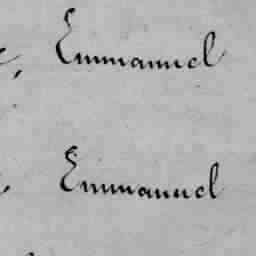 Emmanuel
Emmanuel